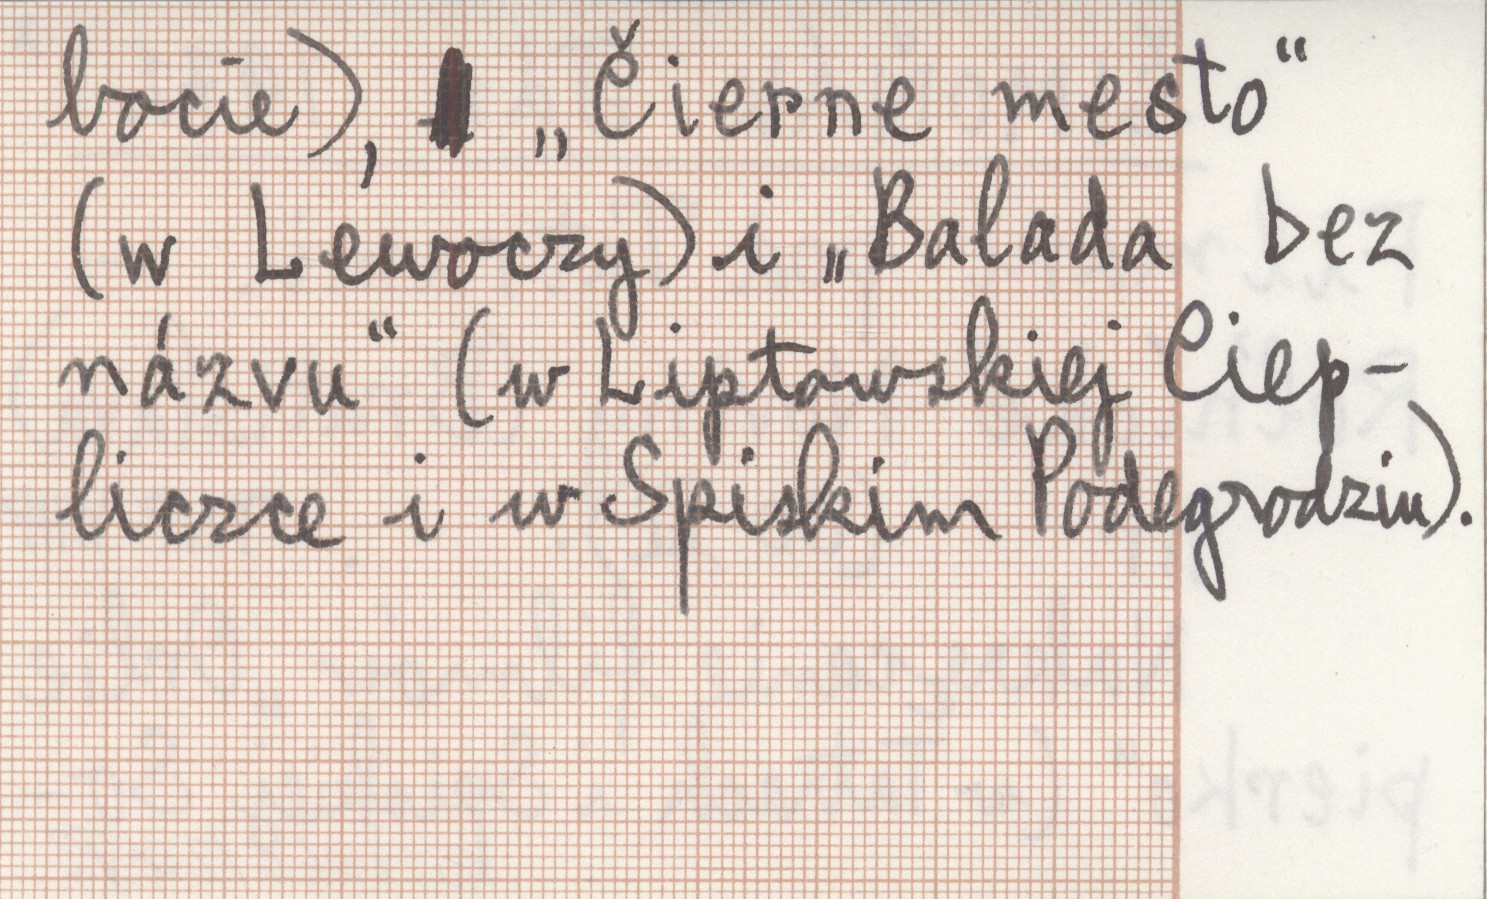 bocie), „Čierne mesto“
(w Lewoczy) i „Balada bez
názvu“ (w Liptowskiej Ciep-
liczce i w Spiskim Podegrodziu).